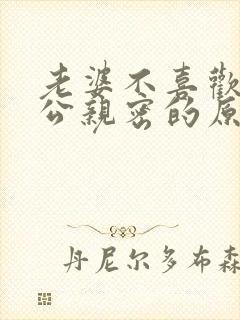 老婆不喜歡
公親密的原
丹尼尔多布森